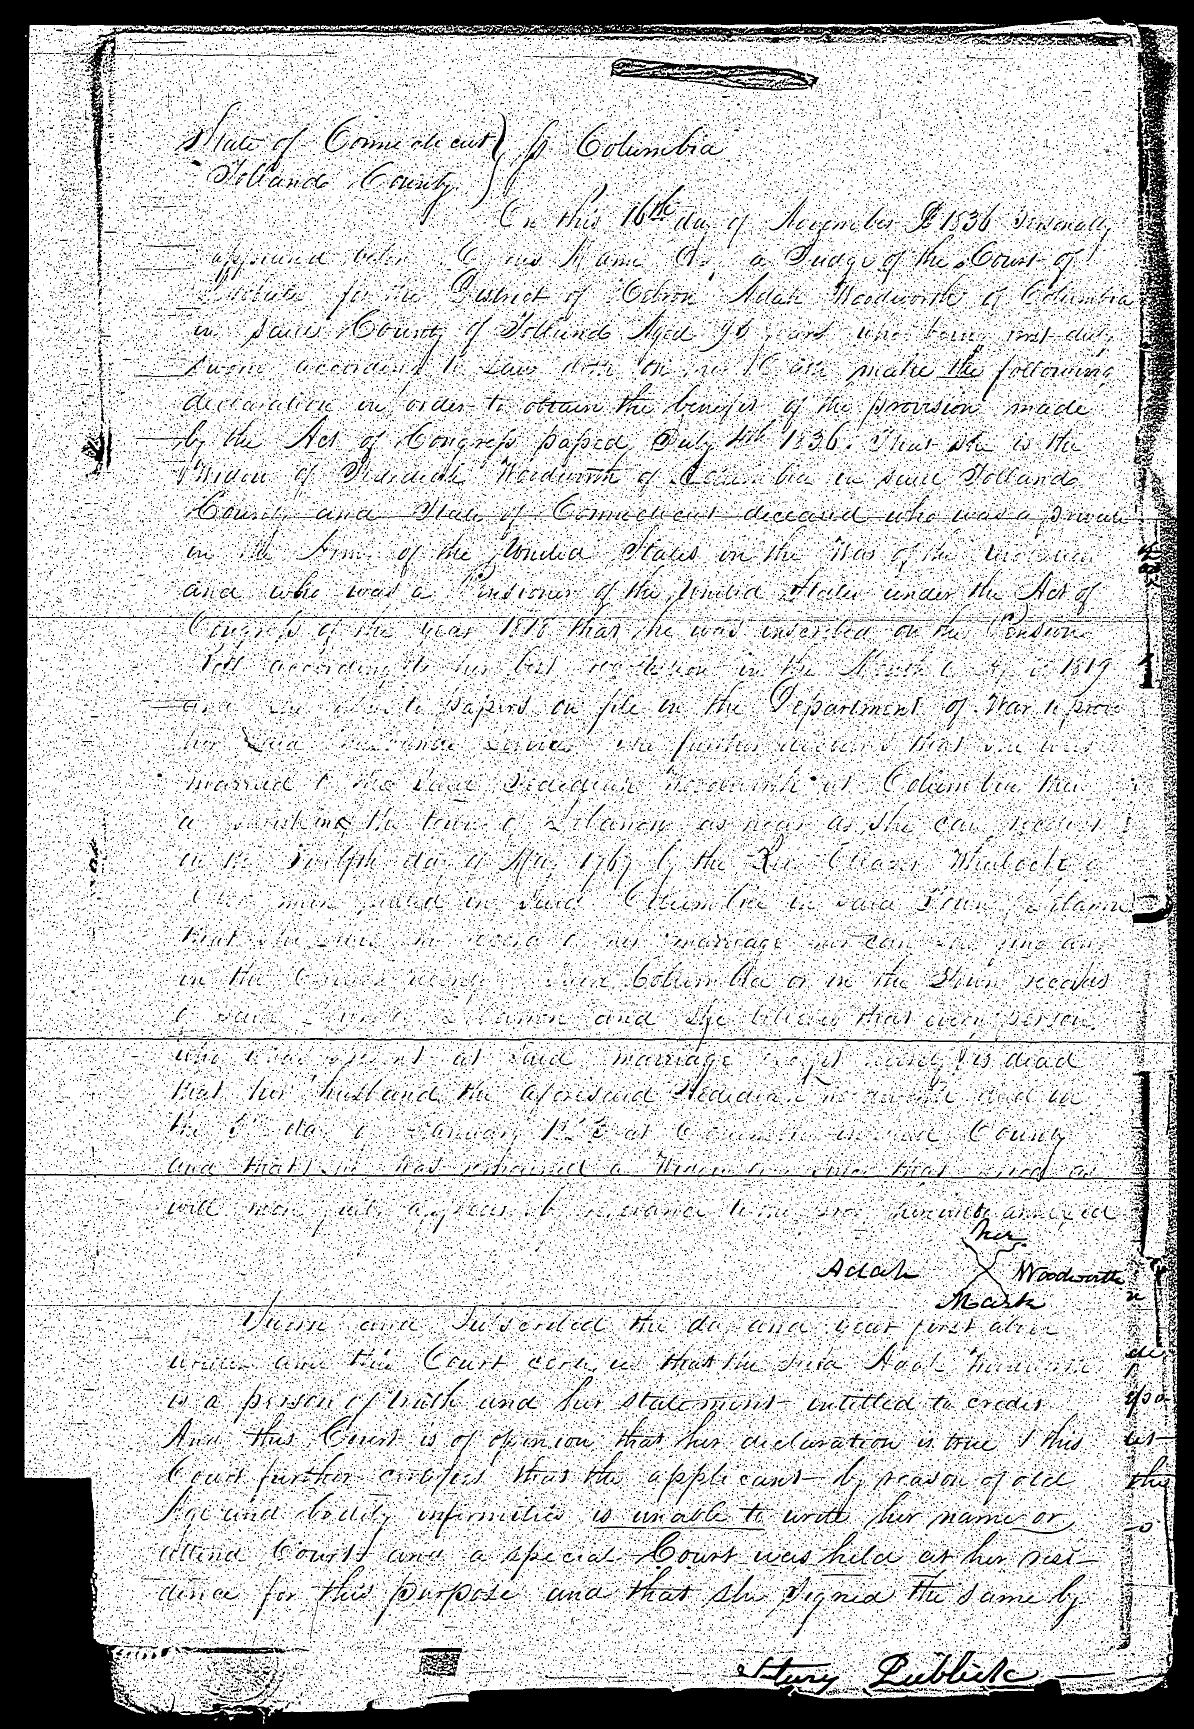 State of Connecticut } ss Columbia
Tolland County
On this 16th day of November 1836 Personally
appeared before a Judge of the Court of
Probate for the District of Hebron Adah Woodworth of Columbia
in said County of Tolland Aged years who being first duly
sworn according to Law doth on her Oath make the following
declaration in order to obtain the benefit of the provision made
by the Act of Congress passed July 4th 1836. That she is the
Widow of Jedediah Woodworth of Columbia in said Tolland
County and State of Connecticut deceased who was a private
in the Army of the United States in the War of the
and who was a Pensioner of the United States under the Act of
Congress of the year 1818 that he was inscribed on the Pension
Roll according to her best recollection in the Month of 1819
and she refers to papers on file in the Department of War to prove
her said husbands service she further declares that she was
married to the said Jedediah Woodworth at Columbia then
a parish in the town of Lebanon as near as she can recollect
on the Twelfth day of May 1767 by the Rev Eleazer Wheelock a
in said Columbia in said Town of Lebanon
that she has no record of her marriage nor can she find any
in the Church of said Columbia or in the Town records
of said Town of Lebanon and she believes that every person
who was present at said marriage except herself is dead
that her husband the aforesaid Jedediah Woodworth died on
the day of January at Columbia in said County
and that she has remained a Widow ever since that period as
will more fully appear by reference to the proof hereunto annexed
her
Adah X Woodworth
Mark
Sworn and Subscribed the day and year first above
written and this Court certifies that the said Adah Woodworth
is a person of truth and her statement intitled to credit
And this Court is of opinion that her declaration is true & this
Court further certifies that the applicant by reason of old
Age and bodily infirmities is unable to write her name or
attend Court and a special Court was held at her resi-
dence for this purpose and that she signed the same by
Publick